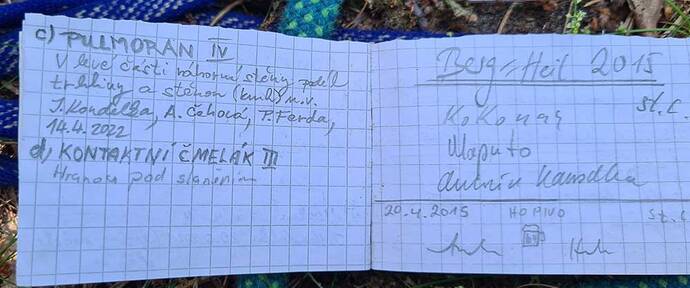 c) PULMORAN IV
V levé části náhorní stěny podél
trhliny a stěnou (kruh) n.v.
J. Kondelka, A. Čehová, P. Ferda,
14.4.2022
d) KONTAKTNÍ ČMELÁK III
Hranou pod slaněním
Berg = Heil 2015
st. c.
Maputo
20.4.2015 HOPIVO st. c.